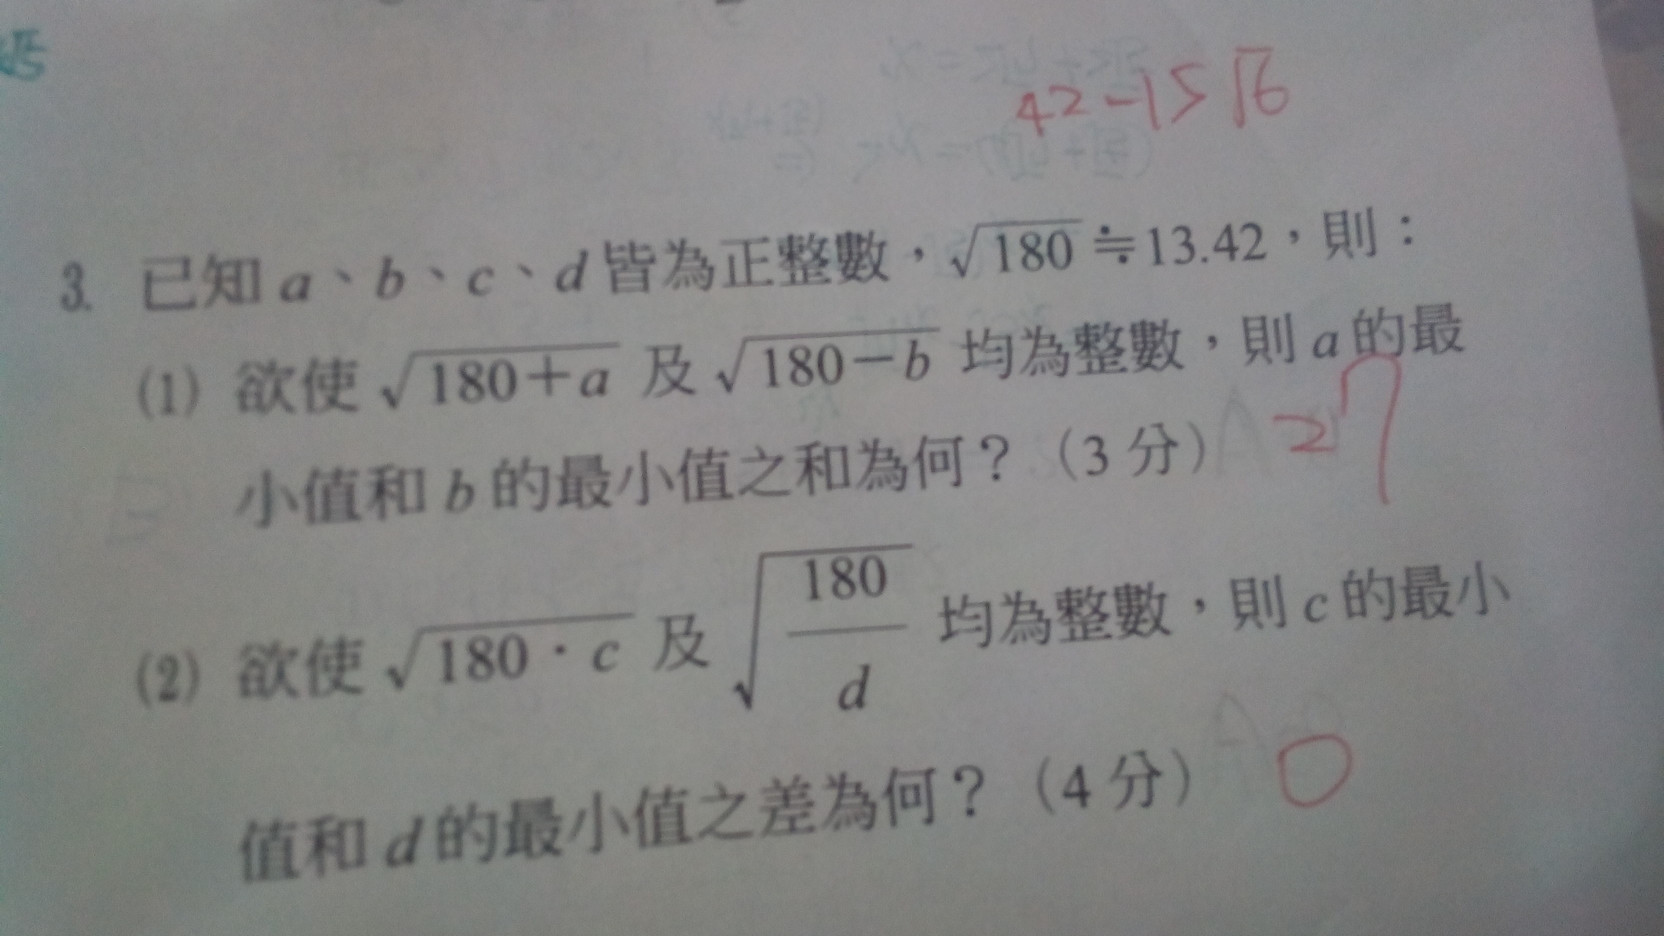 42-15√6
3. 已知 a、b、c、d 皆為正整數，√180≒13.42，則：
(1) 欲使 √180+a 及 √180-b 均為整數，則 a 的最
小值和 b 的最小值之和為何？（3 分） 27
(2) 欲使 √180·c 及 √180/d 均為整數，則 c 的最小
值和 d 的最小值之差為何？（4 分） 0